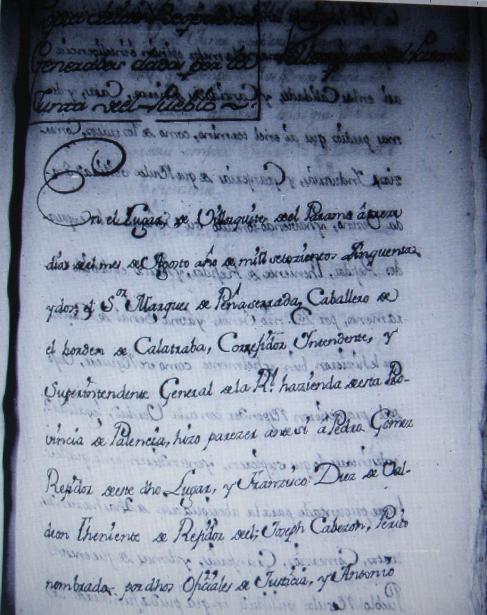 Copia de las Respuestas
Generales dadas por la
Junta del Pueblo
En el Lugar, de Villaquiter del Paramo á treze
dias del mes de Agosto año de mill setezientos Zinquenta
y dos, el S.or Marques de Peñaserrada, Caballero de
el hordem de Calatraba, Correjidor Yntendente, y
Superintendente General de la R.l hazienda de esta Pro-
vincia de Palencia, hizo parezer ante si á Pedro Gomez
Rejidor de este dho Lugar, y Franzisco Diez de Val-
deon Theniente de Rejidor de el; Joseph Cabezon, Perito
nombrado, por dhos Ofiziales de Justicia, y Antonio